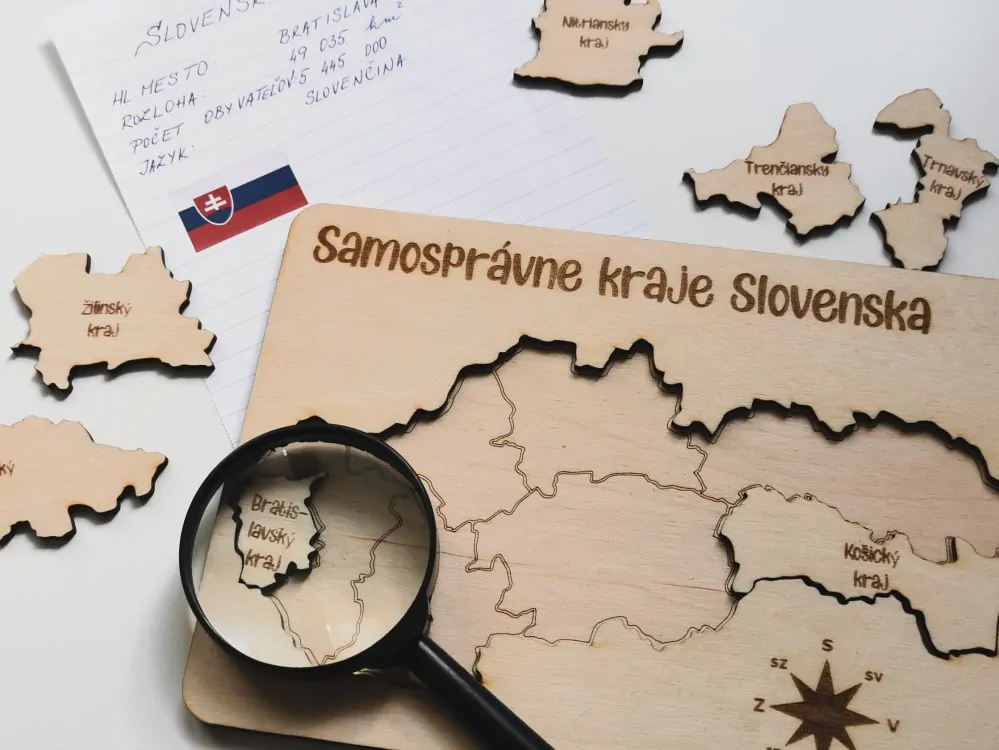 SLOVENSK
HL MESTO: BRATISLAVA
ROZLOHA: 49 035 km²
POČET OBYVATEĽOV: 5 445 000
JAZYK: SLOVENČINA
Nitriansky
kraj
Trenčiansky
kraj
Trnavský
kraj
Samosprávne kraje Slovenska
Žilinský
kraj
ký
Bratis-
lavský
kraj
Košický
kraj
S
SZ
SV
Z
V